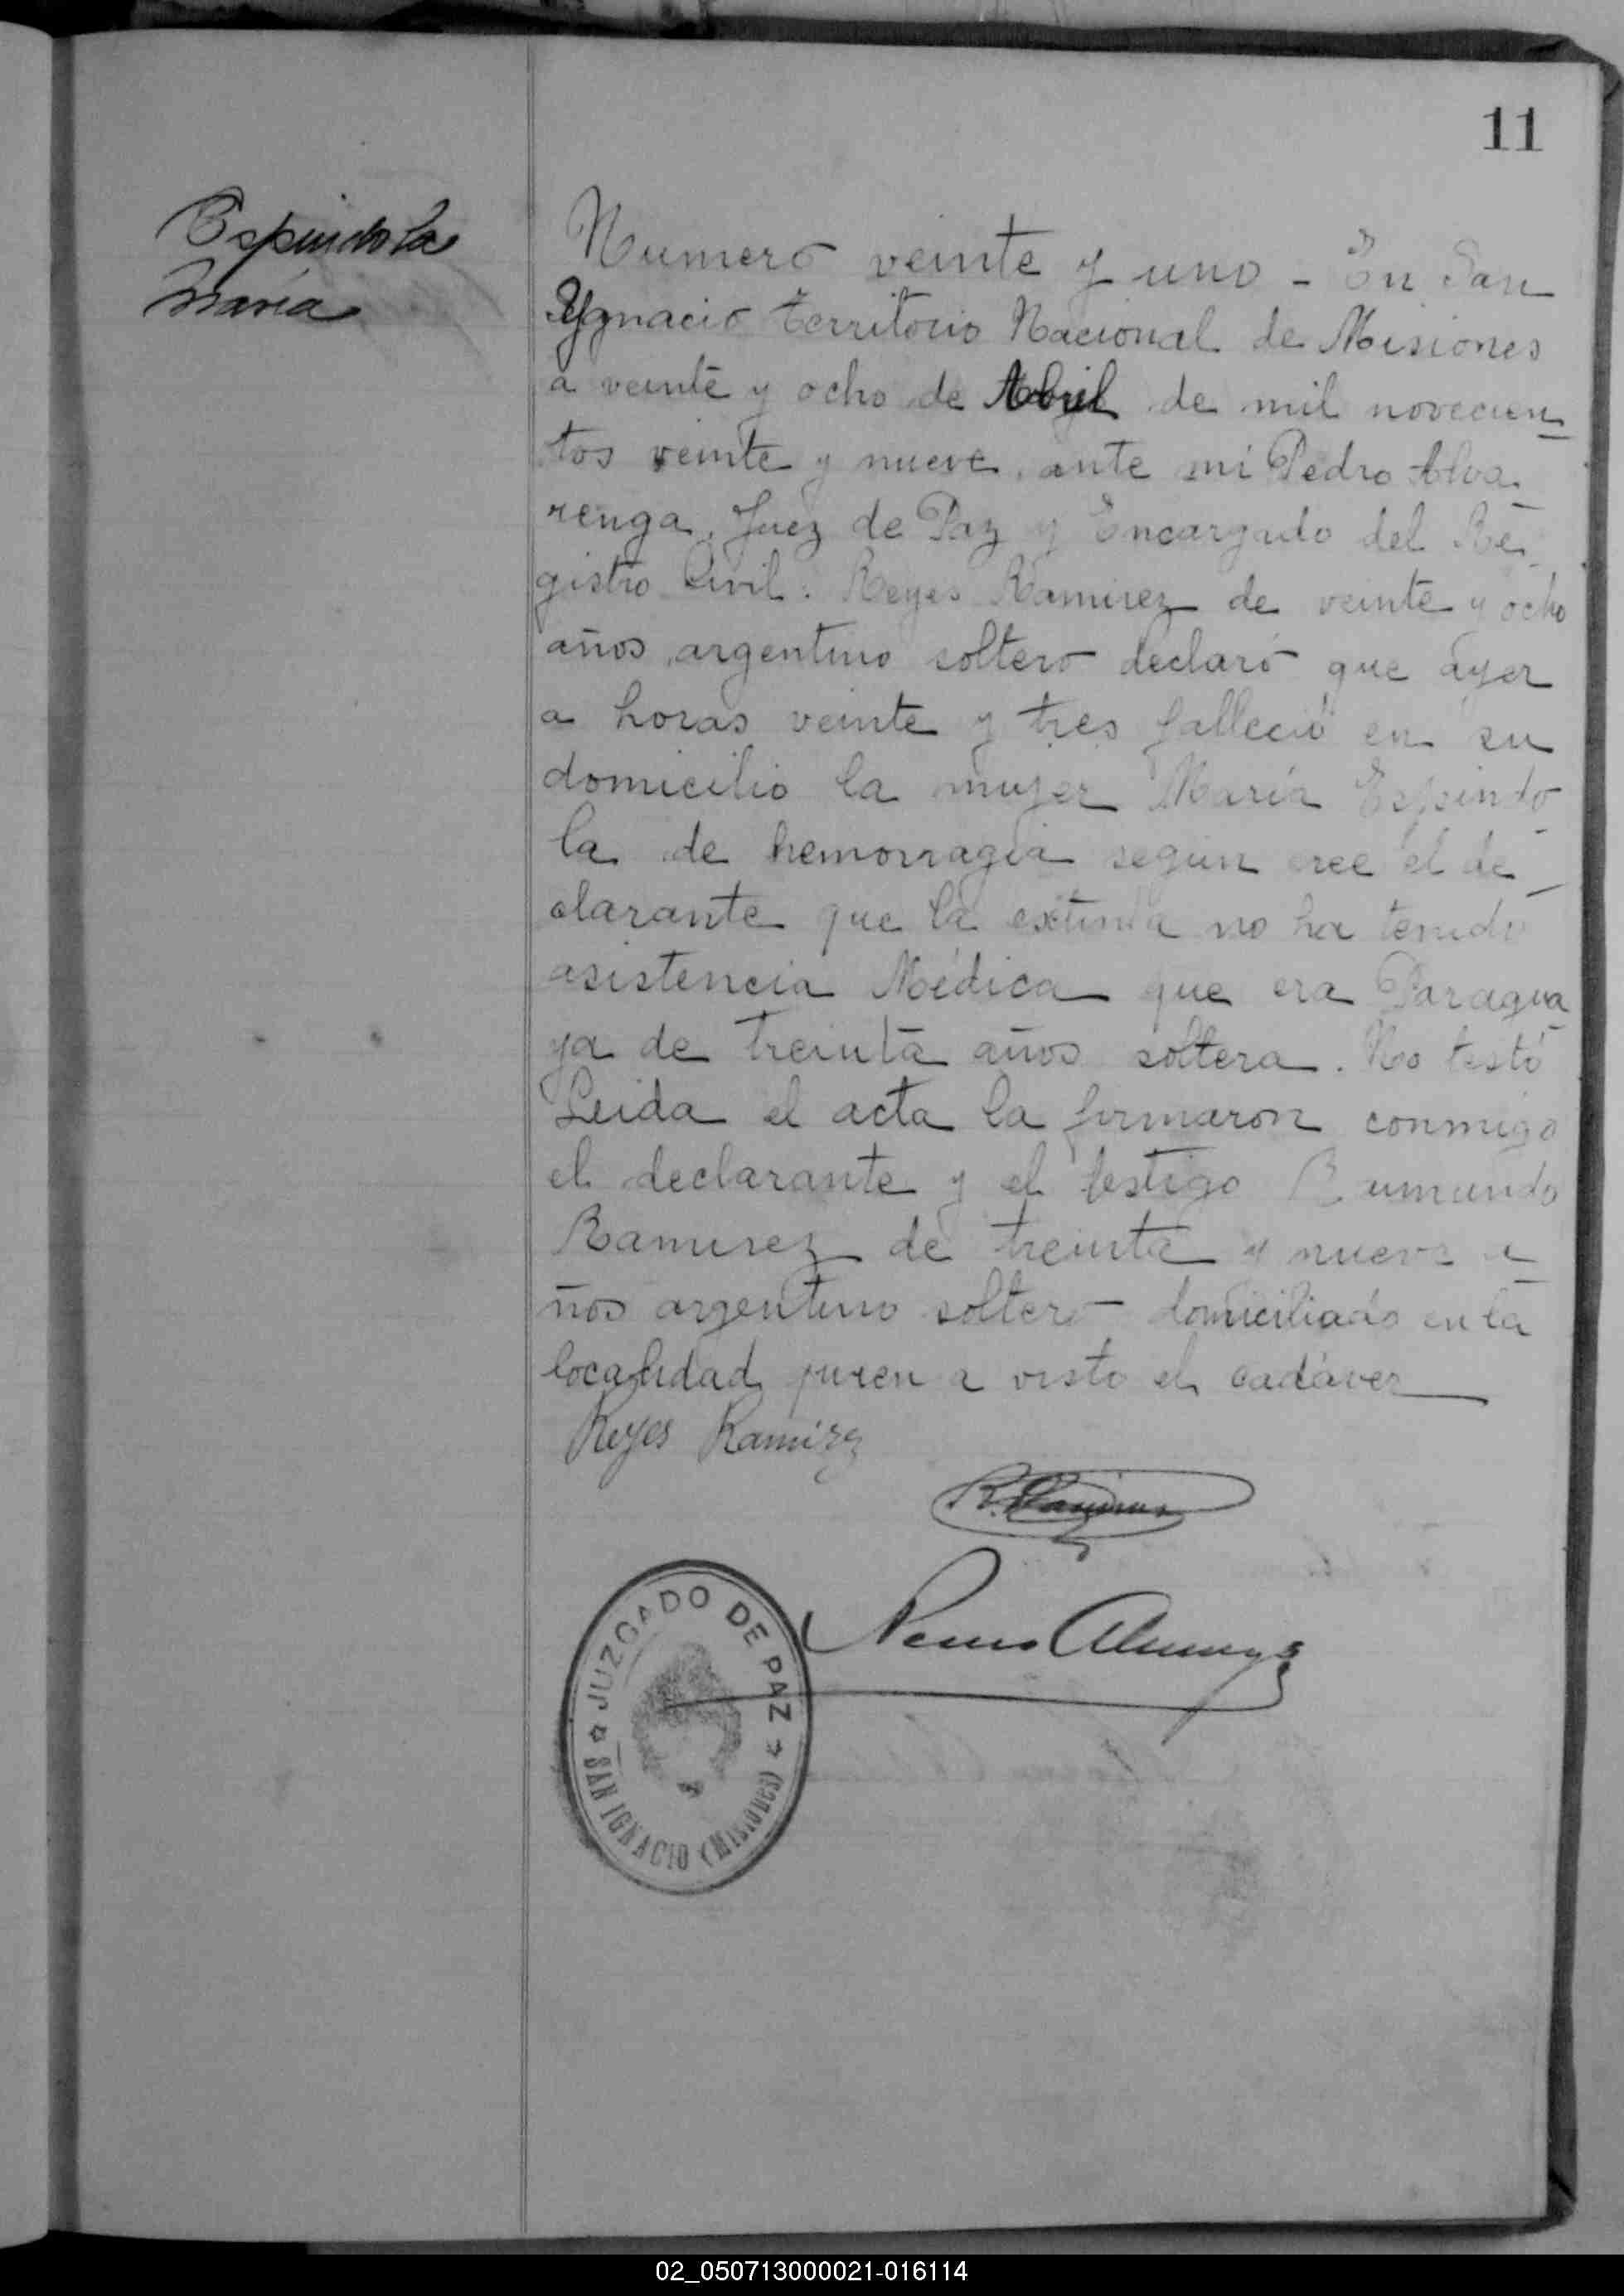 11
Espindola
María
Numero veinte y uno - En San
Ygnacio territorio Nacional de Misiones
a veinte y ocho de Abril de mil novecien
tos veinte y nueve, ante mi Pedro Alva
renga, Juez de Paz y Encargado del Re
gistro Civil: Reyes Ramirez de veinte y ocho
años, argentino soltero declaró que ayer
a horas veinte y tres falleció en su
domicilio la mujer María Espindo
la de hemorragia segun cree el de
clarante que la extinta no ha tenido
asistencia Médica que era Paragua
ya de treinta años soltera. No testó
Leida el acta la firmaron conmigo
el declarante y el testigo
Ramirez de treinta y nueve a
ños argentino soltero domiciliado en la
localidad quien a visto el cadáver
Reyes Ramirez
R. Ramirez
JUZGADO DE PAZ
SAN IGNACIO (MISIONES)
02_050713000021-016114